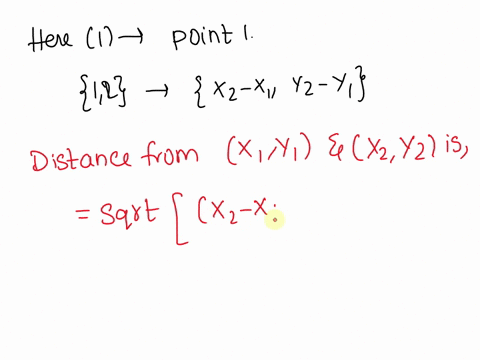 Here (1) → point 1.
{1,2} → { X₂-X₁, Y₂-Y₁}
Distance from (X₁,Y₁) & (X₂,Y₂) is,
= Sqrt [ (X₂-X